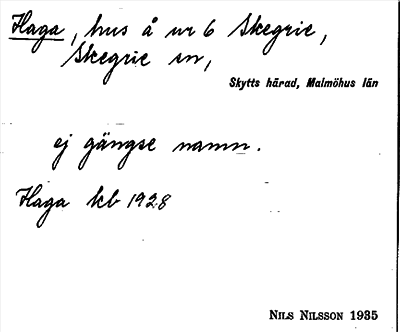 Haga, hus å nr 6 Skegrie,
Skegrie sn,
Skytts härad, Malmöhus län
ej gängse namn.
Haga kb 1928
NILS NILSSON 1935